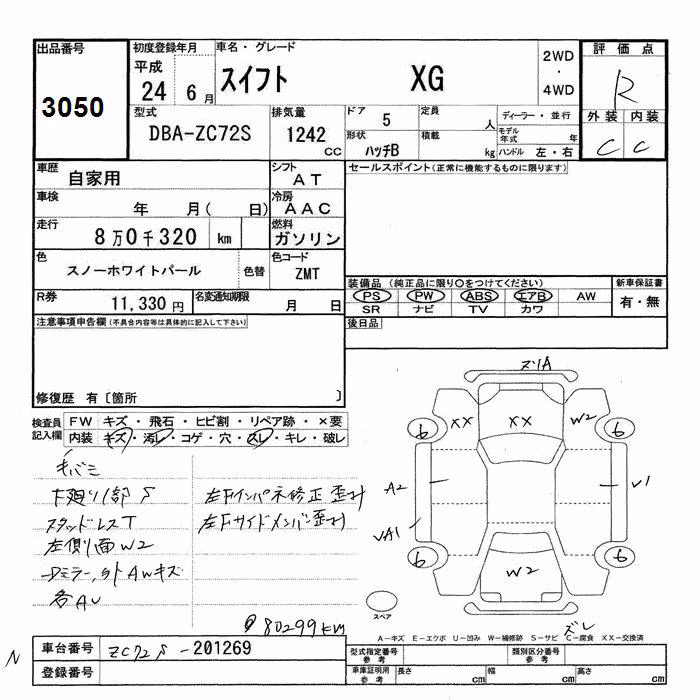 出品番号
3050
初度登録年月
平成
24 6月
車名・グレード
スイフト XG
2WD
・
4WD
評価点
R
外装 内装
C C
型式
DBA-ZC72S
排気量
1242
cc
ドア 5
定員 人
ディーラー・並行
形状 ハッチB
積載 kg
モデル年式 年
ハンドル 左・右
車歴
自家用
シフト
AT
セールスポイント(正常に機能するものに限ります)
車検
年 月( 日)
冷房
AAC
走行
8万0千320 km
燃料
ガソリン
色
スノーホワイトパール
色替
色コード
ZMT
装備品(純正品に限り○をつけてください)
新車保証書
PS PW ABS エアB AW
有・無
SR ナビ TV カワ
R券
11,330円
名変通知期限
月 日
後日品
注意事項申告欄(不具合内容等は具体的に記入して下さい)
修復歴 有〔箇所 〕
検査員記入欄
FW キズ・飛石・ヒビ割・リペア跡・×要
内装 キズ・汚レ・コゲ・穴・スレ・キレ・破レ
毛バミ
下廻り1部S
スタッドレスT
左側面W2
Dミラー,外AWキズ
各AU
左Fインパネ修正歪み
左Fサイドメンバー歪み
80299km
ズレA
XX XX W2
6 6
A2 V1
VA1
6 6
W2
スペア
ズレ
A-キズ E-エクボ U-凹み W-補修跡 S-サビ C-腐食 XX-交換済
N
車台番号
ZC72S-201269
登録番号
型式指定番号
参考
類別区分番号
参考
車庫証明用
参考
長さ cm
幅 cm
高さ cm